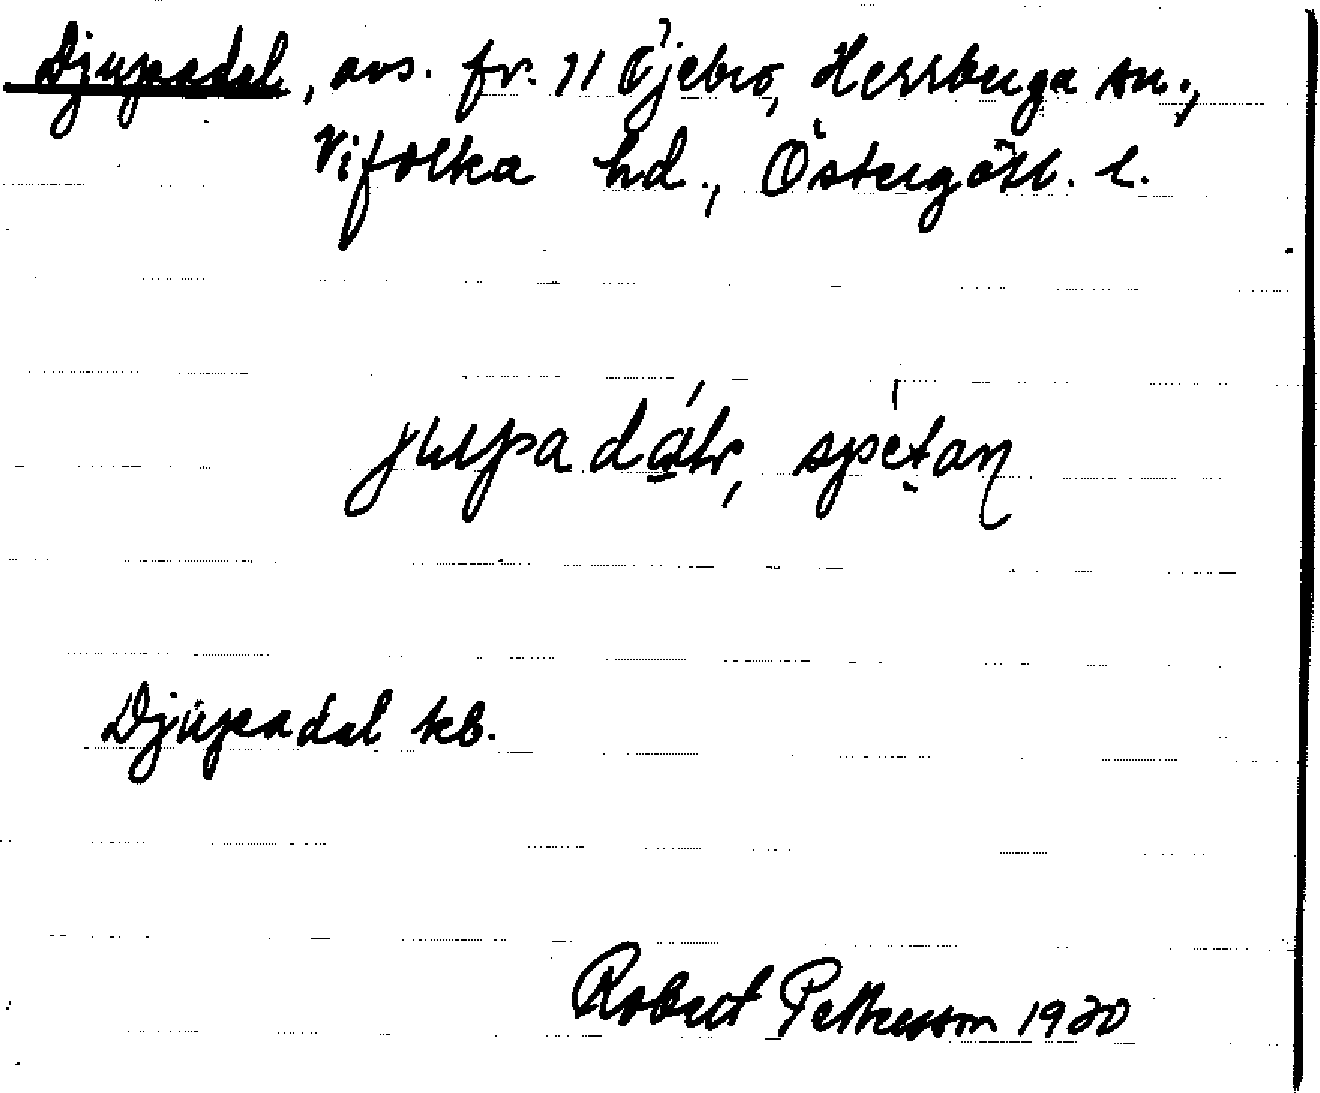 Djupadal, avs. fr. 11 Öjebro, Herrberga sn.,
Vifolka hd., Östergötl. l.
Djupadal kb.
Robert Pettersson 1920